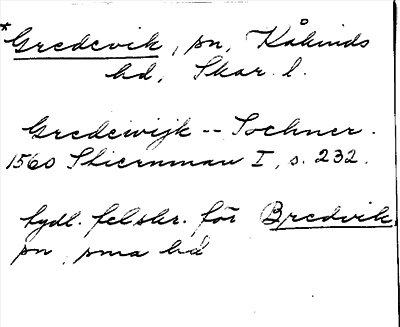 *Gredevik, pn, Kåkinds
hd, Skar. l.
Gredewijk -- Sochner.
1560 Stiernman I, s. 232.
tydl. felskr. för Bredvik,
pn, sma hd